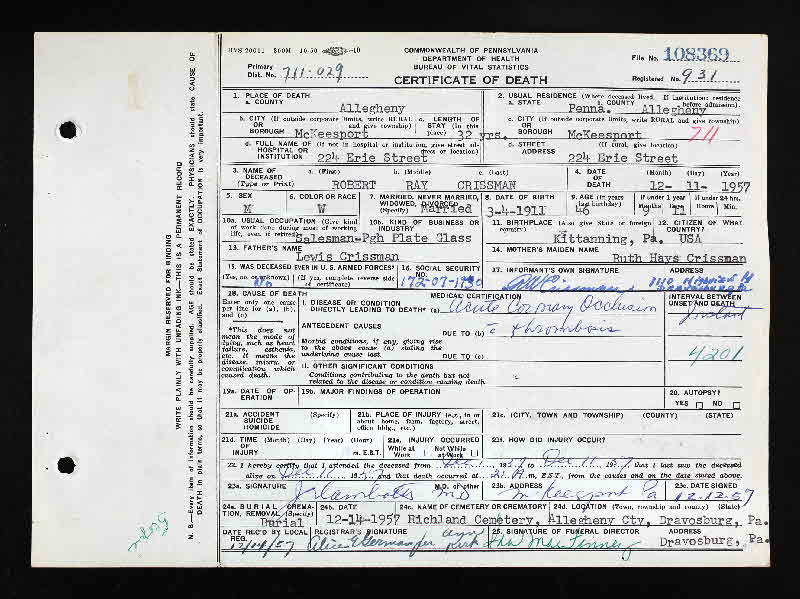 HVS 20011 300M 10-50
COMMONWEALTH OF PENNSYLVANIA
DEPARTMENT OF HEALTH
BUREAU OF VITAL STATISTICS
CERTIFICATE OF DEATH
File No. 108369
Primary Dist. No. 711-029
Registered No. 931
MARGIN RESERVED FOR BINDING
WRITE PLAINLY WITH UNFADING INK—THIS IS A PERMANENT RECORD
N. B.—Every item of information should be carefully supplied. AGE should be stated EXACTLY. PHYSICIANS should state CAUSE OF
DEATH in plain terms, so that it may be properly classified. Exact Statement of OCCUPATION is very important.
1. PLACE OF DEATH
a. COUNTY Allegheny
2. USUAL RESIDENCE (Where deceased lived. If institution: residence before admission).
a. STATE Penna. b. COUNTY Allegheny
b. CITY (If outside corporate limits, write RURAL and give township) OR BOROUGH McKeesport
c. LENGTH OF STAY (in this place) 32 yrs.
c. CITY (If outside corporate limits, write RURAL and give township) OR BOROUGH McKeesport 711
d. FULL NAME OF (If not in hospital or institution, give street address or location) HOSPITAL OR INSTITUTION 224 Erie Street
d. STREET ADDRESS (If rural, give location) 224 Erie Street
3. NAME OF DECEASED (Type or Print) a. (First) b. (Middle) c. (Last)
ROBERT RAY CRISSMAN
4. DATE OF DEATH (Month) (Day) (Year)
12- 11- 1957
5. SEX M
6. COLOR OR RACE W
7. MARRIED, NEVER MARRIED, WIDOWED, DIVORCED (Specify) Married
8. DATE OF BIRTH 3-4-1911
9. AGE (In years last birthday) 46 If under 1 year Months 9 Days 11 If under 24 hrs. Hours Min.
10a. USUAL OCCUPATION (Give kind of work done during most of working life, even if retired) 10b. KIND OF BUSINESS OR INDUSTRY
Salesman-Pgh Plate Glass
11. BIRTHPLACE (Also give State or foreign country) Kittanning, Pa.
12. CITIZEN OF WHAT COUNTRY? USA
13. FATHER'S NAME Lewis Crissman
14. MOTHER'S MAIDEN NAME Ruth Hays Crissman
15. WAS DECEASED EVER IN U.S. ARMED FORCES? (Yes, no or unknown) (If yes, complete reverse side of certificate) No
16. SOCIAL SECURITY No. 172-07-1730
17. INFORMANT'S OWN SIGNATURE ADDRESS
18. CAUSE OF DEATH
Enter only one cause per line for (a), (b), and (c)
MEDICAL CERTIFICATION
INTERVAL BETWEEN ONSET AND DEATH
I. DISEASE OR CONDITION DIRECTLY LEADING TO DEATH (a) Acute Coronary Occlusion Instant
*This does not mean the mode of dying, such as heart failure, asthenia, etc. It means the disease, injury, or complication which caused death.
ANTECEDENT CAUSES
Morbid conditions, if any, giving rise to the above cause (a) stating the underlying cause last.
DUE TO (b) thrombosis
DUE TO (c)
4201
II. OTHER SIGNIFICANT CONDITIONS
Conditions contributing to the death but not related to the disease or condition causing death
19a. DATE OF OPERATION
19b. MAJOR FINDINGS OF OPERATION
20. AUTOPSY? YES NO
21a. ACCIDENT SUICIDE HOMICIDE (Specify)
21b. PLACE OF INJURY (e.g., in or about home, farm, factory, street, office bldg., etc.)
21c. (CITY, TOWN AND TOWNSHIP) (COUNTY) (STATE)
21d. TIME OF INJURY (Month) (Day) (Year) (Hour) m. E.S.T.
21e. INJURY OCCURRED While at Work Not While at Work
21f. HOW DID INJURY OCCUR?
22. I hereby certify that I attended the deceased from Dec 1 1957 to Dec 11 1957 that I last saw the deceased
alive on Dec 11 1957 and that death occurred at m., E.S.T., from the causes and on the date stated above.
23a. SIGNATURE M.D. or other
23b. ADDRESS McKeesport Pa
23c. DATE SIGNED 12-12-57
24a. BURIAL, CREMATION, REMOVAL (Specify) Burial
24b. DATE 12-14-1957
24c. NAME OF CEMETERY OR CREMATORY Richland Cemetery,
24d. LOCATION (Town, township and county) (State) Allegheny Cty, Dravosburg, Pa.
DATE REC'D BY LOCAL REG. 12/14/57
REGISTRAR'S SIGNATURE
25. SIGNATURE OF FUNERAL DIRECTOR
ADDRESS Dravosburg, Pa.